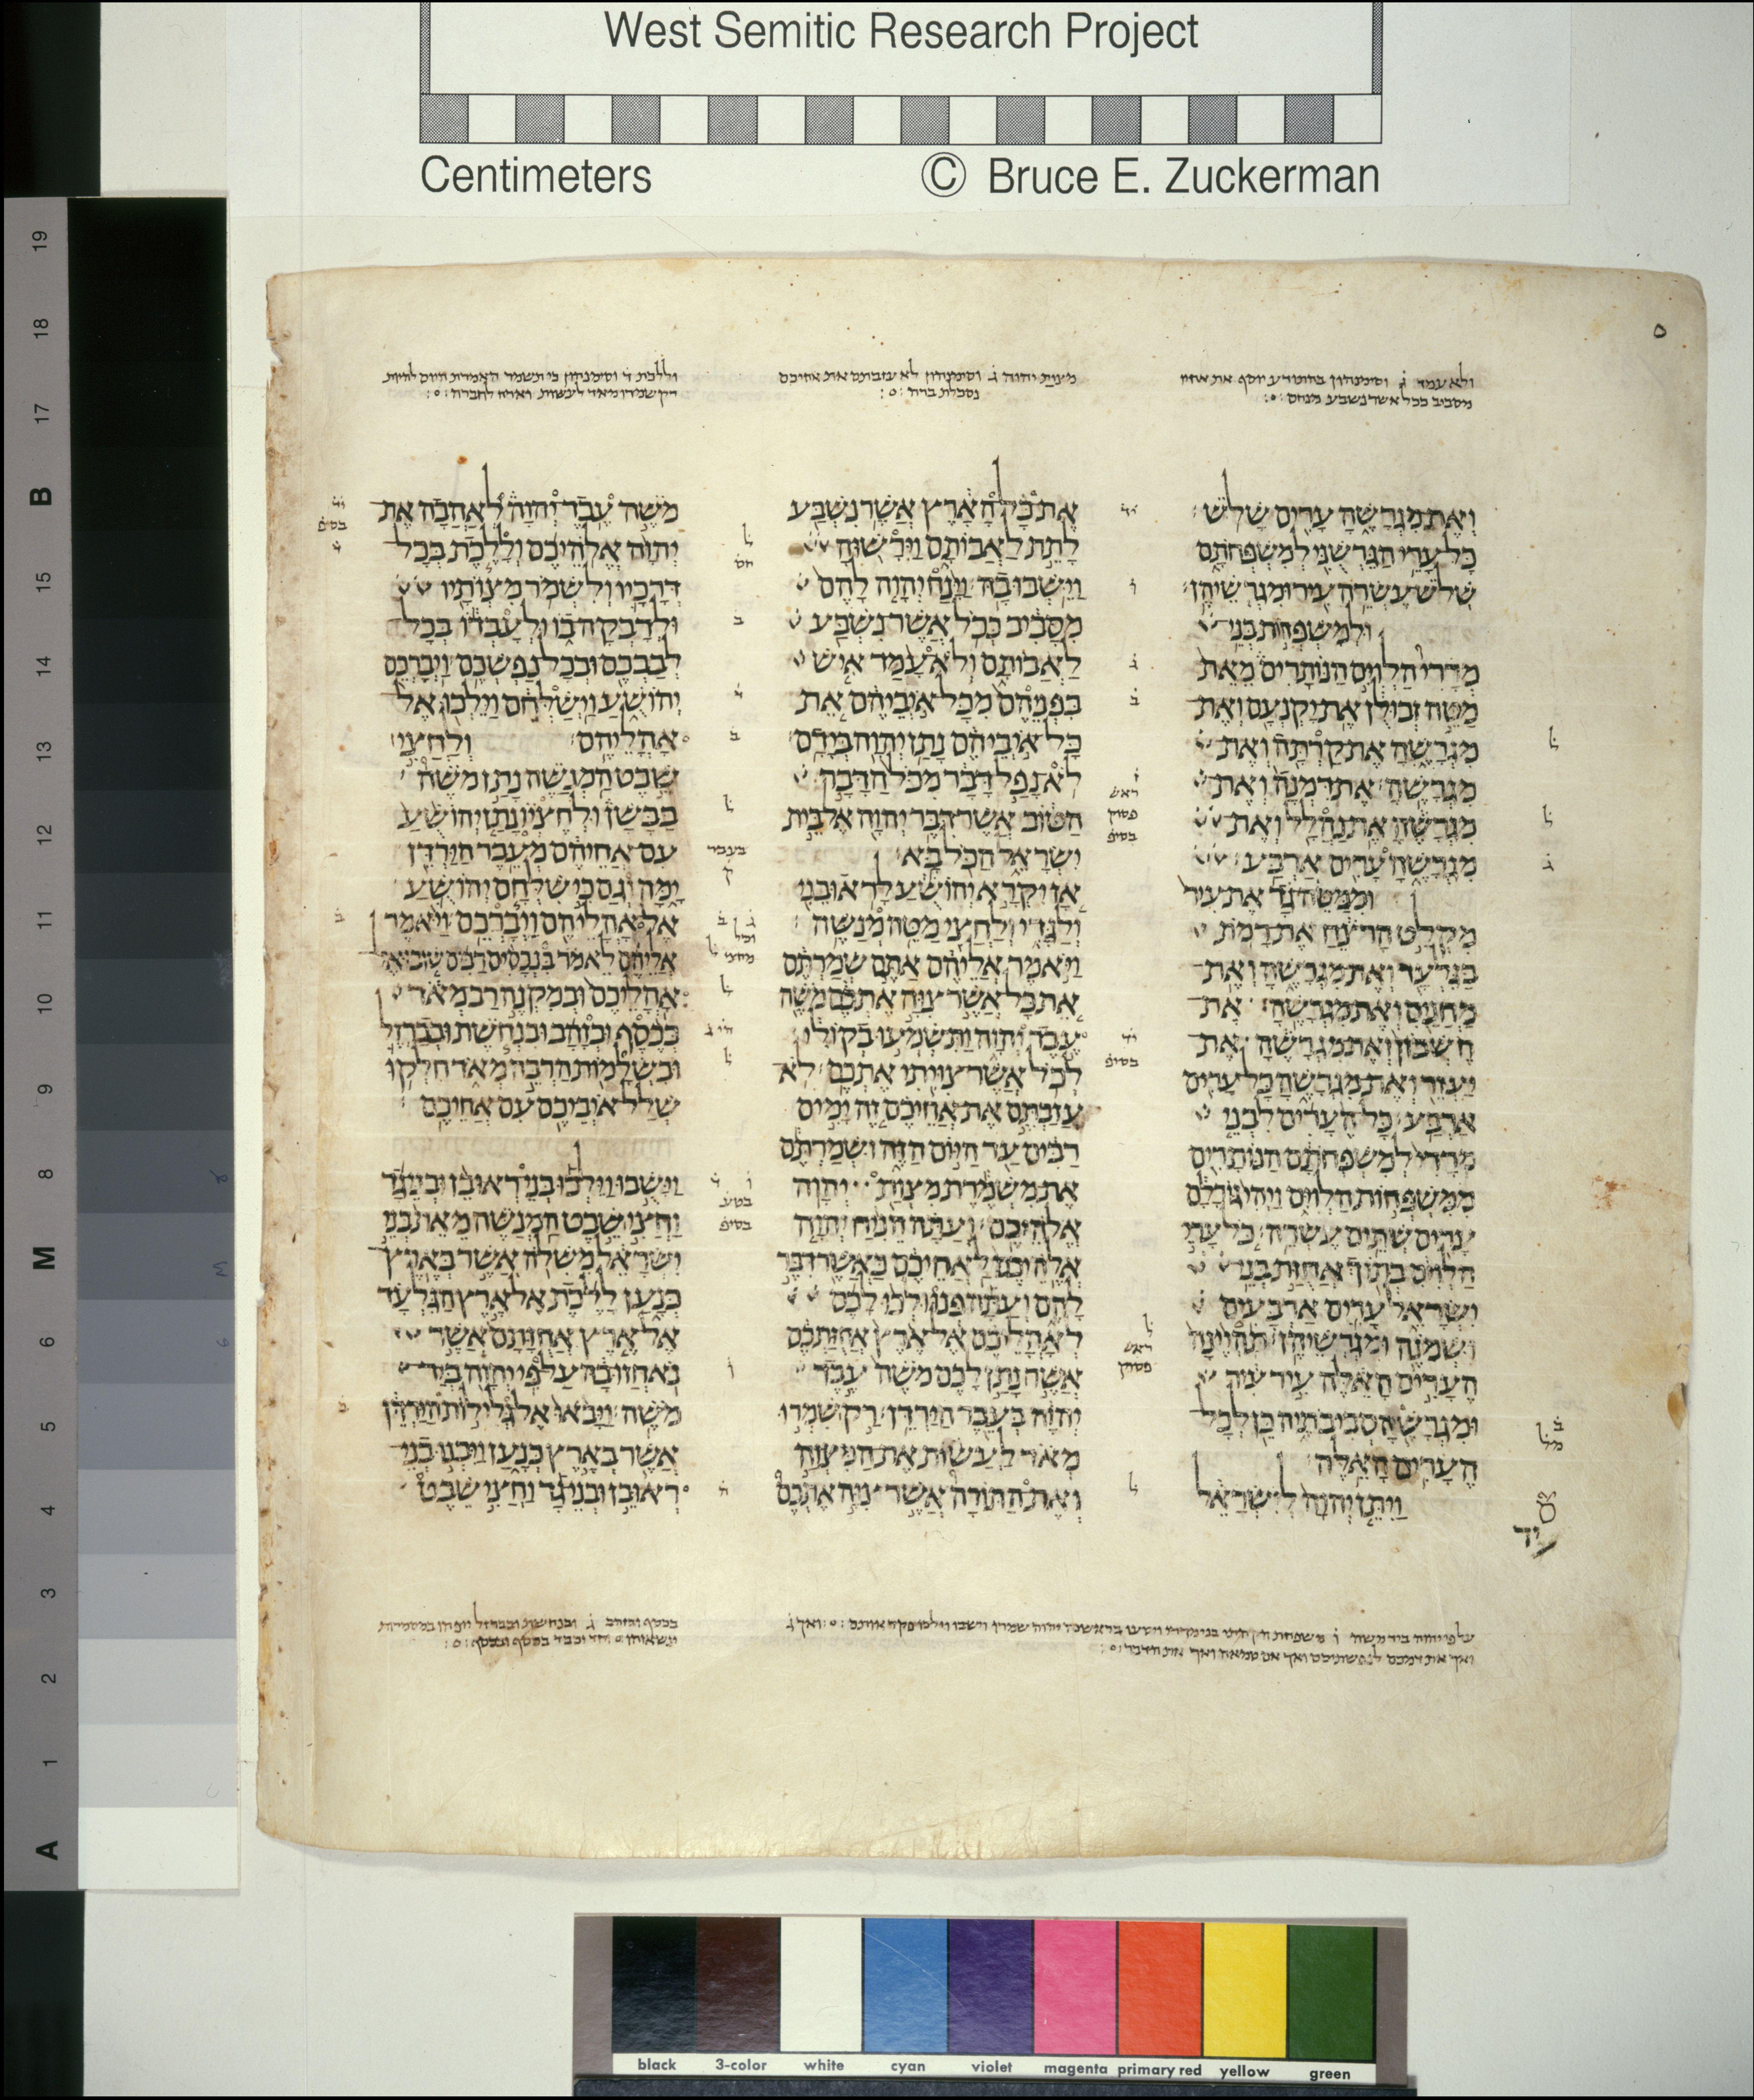 West Semitic Research Project
Centimeters © Bruce E. Zuckerman
ולא עמד ג וסימנהון בהתודע יוסף את אחיו
מסביב ככל אשר נשבע מנחם
מצות יהוה ג וסימנהון לא עזבתם את אחיכם
נסכלת ברח
וללכת ד וסימנהון כי תשמר האמרת היום להיות
רק שמרו מאד לעשות וארח לחברה
ואת מגרשה ערים שלש
כל ערי הגרשני למשפחתם
שלש עשרה עיר ומגרשיהן
ולמשפחות בני
מררי הלוים הנותרים מאת
מטה זבולן את יקנעם ואת
מגרשה את קרתה ואת
מגרשה את דמנה ואת
מגרשה את נהלל ואת
מגרשה ערים ארבע
וממטה גד את עיר
מקלט הרצח את רמת
בגלעד ואת מגרשה ואת
מחנים ואת מגרשה את
חשבון ואת מגרשה את
יעזר ואת מגרשה כל ערים
ארבע כל הערים לבני
מררי למשפחתם הנותרים
ממשפחות הלוים ויהי גורלם
ערים שתים עשרה כל ערי
הלוים בתוך אחזת בני
ישראל ערים ארבעים
ושמנה ומגרשיהן תהיינה
הערים האלה עיר עיר
ומגרשיה סביבתיה כן לכל
הערים האלה
ויתן יהוה לישראל
את כל הארץ אשר נשבע
לתת לאבותם וירשוה
וישבו בה וינח יהוה להם
מסביב ככל אשר נשבע
לאבותם ולא עמד איש
בפניהם מכל איביהם את
כל איביהם נתן יהוה בידם
לא נפל דבר מכל הדבר
הטוב אשר דבר יהוה אל בית
ישראל הכל בא
אז יקרא יהושע לראובני
ולגדי ולחצי מטה מנשה
ויאמר אליהם אתם שמרתם
את כל אשר צוה אתכם משה
עבד יהוה ותשמעו בקולי
לכל אשר צויתי אתכם לא
עזבתם את אחיכם זה ימים
רבים עד היום הזה ושמרתם
את משמרת מצות יהוה
אלהיכם ועתה הניח יהוה
אלהיכם לאחיכם כאשר דבר
להם ועתה פנו ולכו לכם
לאהליכם אל ארץ אחזתכם
אשר נתן לכם משה עבד
יהוה בעבר הירדן רק שמרו
מאד לעשות את המצוה
ואת התורה אשר צוה אתכם
משה עבד יהוה לאהבה את
יהוה אלהיכם וללכת בכל
דרכיו ולשמר מצותיו
ולדבקה בו ולעבדו בכל
לבבכם ובכל נפשכם ויברכם
יהושע וישלחם וילכו אל
אהליהם ולחצי
שבט המנשה נתן משה
בבשן ולחציו נתן יהושע
עם אחיהם מעבר הירדן
ימה וגם כי שלחם יהושע
אל אהליהם ויברכם ויאמר
אליהם לאמר בנכסים רבים שובו אל
אהליכם ובמקנה רב מאד
בכסף ובזהב ובנחשת ובברזל
ובשלמות הרבה מאד חלקו
שלל איביכם עם אחיכם
וישבו וילכו בני ראובן ובני גד
וחצי שבט המנשה מאת בני
ישראל משלה אשר בארץ
כנען ללכת אל ארץ הגלעד
אל ארץ אחזתם אשר
נאחזו בה על פי יהוה ביד
משה ויבאו אל גלילות הירדן
אשר בארץ כנען ויבנו בני
ראובן ובני גד וחצי שבט
ראש
פסוק
בסיפ
בעבר
ק
ראש
פסוק
black 3-color white cyan violet magenta primary red yellow green
19 18 17 B 15 14 13 12 11 10 9 8 M 6 5 4 3 2 1 A